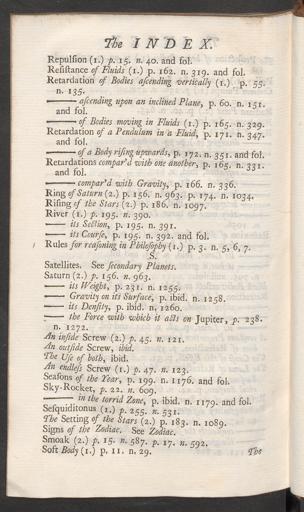 The INDEX.
Repulsion (1.) p. 15. n. 40. and fol.
Resistance of Fluids (1.) p. 162. n. 319. and fol.
Retardation of Bodies ascending vertically (1.) p. 55.
n. 135.
—— ascending upon an inclined Plane, p. 60. n. 151.
and fol.
—— of Bodies moving in Fluids (1.) p. 165. n. 329.
Retardation of a Pendulum in a Fluid, p. 171. n. 347.
and fol.
—— of a Body rising upwards, p. 172. n. 351. and fol.
Retardations compar'd with one another, p. 165. n. 331.
and fol.
—— compar'd with Gravity, p. 166. n. 336.
Ring of Saturn (2.) p. 156. n. 963. p. 174. n. 1034.
Rising of the Stars (2.) p. 186. n. 1097.
River (1.) p. 195. n. 390.
—— its Section, p. 195. n. 391.
—— its Course, p. 195. n. 392. and fol.
Rules for reasoning in Philosophy (1.) p. 3. n. 5, 6, 7.
S.
Satellites. See secondary Planets.
Saturn (2.) p. 156. n. 963.
—— its Weight, p. 231. n. 1255.
—— Gravity on its Surface, p. ibid. n. 1258.
—— its Density, p. ibid. n, 1260.
—— the Force with which it acts on Jupiter, p. 238.
n. 1272.
An inside Screw (2.) p. 45. n. 121.
An outside Screw, ibid.
The Use of both, ibid.
An endless Screw (1.) p. 47. n. 123.
Seasons of the Year, p. 199. n. 1176. and fol.
Sky-Rocket, p. 22. n. 609.
—— in the torrid Zone, p. ibid. n. 1179. and fol.
Sesquiditonus (1.) p. 255. n. 531.
The Setting of the Stars (2.) p. 183. n. 1089.
Signs of the Zodiac. See Zodiac.
Smoak (2.) p. 15. n. 587. p. 17. n. 592.
Soft Body (1.) p. 11. n. 29.
The